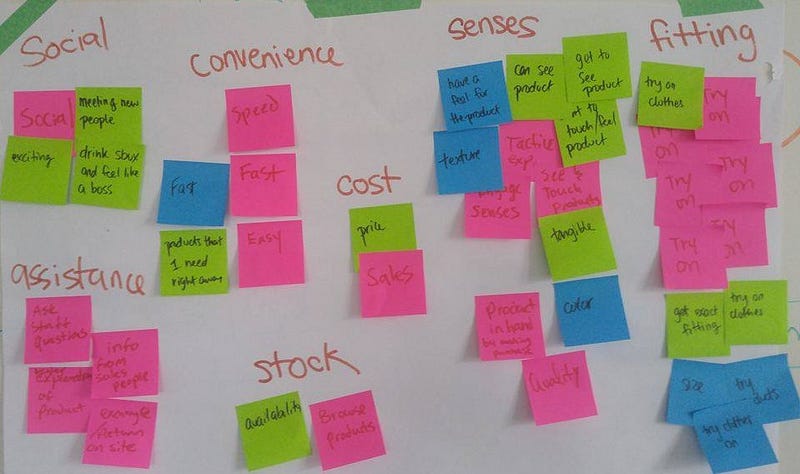 Social
Social
meeting new
people
exciting
drink sbux
and feel like
a boss
convenience
Speed
Fast
Fast
products that
I need
right away
Easy
cost
price
Sales
senses
have a
feel for
the product
can see
product
get to
see
product
texture
Tactile
Exp.
touch/feel
product
Engage
senses
See &
Touch
Products
tangible
Product
in hand
by making
purchase
color
Quality
fitting
try on
clothes
Try
on
Try
on
Try
on
Try
on
Try
on
Try
on
get exact
fitting
try on
clothes
size
try
try clothes
on
assistance
Ask
staff
questions
info
from
sales
people
of
Product
exchange
Return
on site
stock
availability
Browse
products